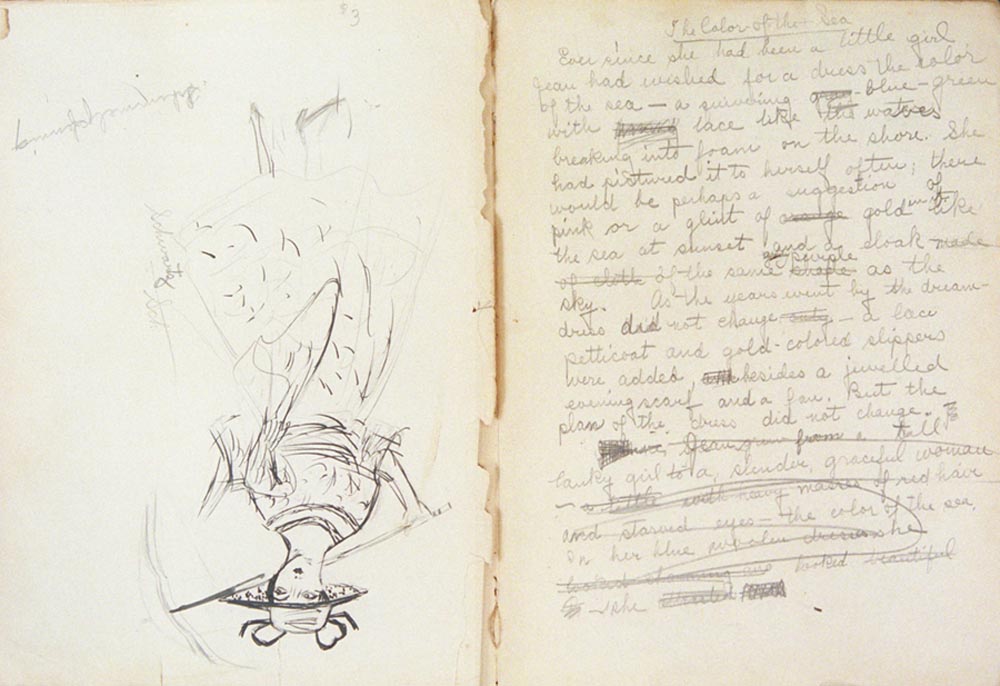 $3
The Color of the Sea
Ever since she had been a little girl
Jean had wished for a dress the color
of the sea — a shimmering green-blue-green
with lace like the waves
breaking into foam on the shore. She
had pictured it to herself often; there
would be perhaps a suggestion of
pink or a glint of orange gold in it like
the sea at sunset and a cloak made
of cloth of the same shade purple as the
sky. As the years went by the dream-
dress did not change, only — a lace
petticoat and gold-colored slippers
were added, and besides a jewelled
evening scarf and a fan. But the
plan of the dress did not change.
Jean grew from a tall
lanky girl to a slender, graceful woman
— a little with heavy masses of red hair
and starved eyes — the color of the sea.
In her blue woolen dress she
looked charming and looked beautiful
— she